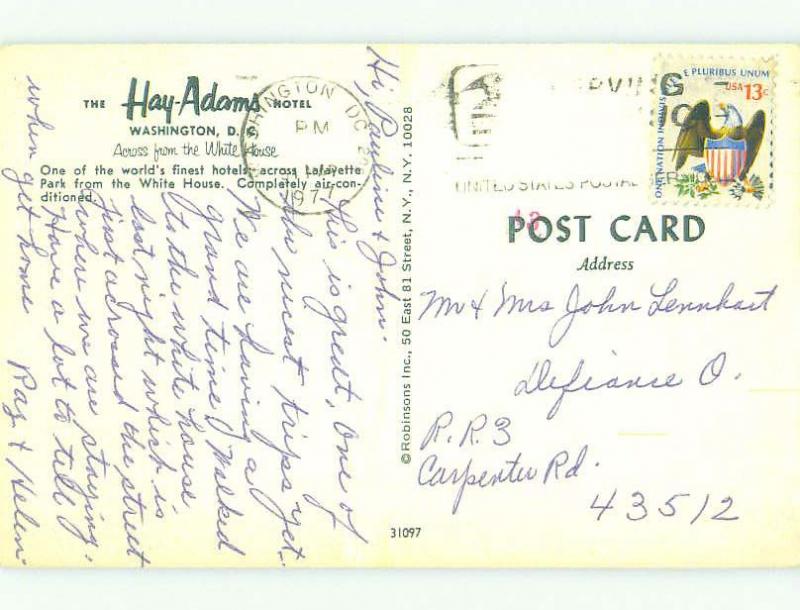 THE Hay-Adams HOTEL
WASHINGTON, D. C.
Across from the White House
One of the world's finest hotels, across Lafayette
Park from the White House. Completely air-con-
ditioned.
Hi, Pauline & John:
This is great. One of
the nicest trips yet.
We are having a
grand time. Walked
to the white house
last night which is
just acrossed the street
where we are staying.
Have a lot to tell
when get home
Ray & Helen
© Robinsons Inc., 50 East 81 Street, N.Y., N.Y. 10028
31097
WASHINGTON DC
PM
197
UNITED STATES POSTAL
E PLURIBUS UNUM
USA 13c
ONE NATION INDIVIS
13
POST CARD
Address
Mr & Mrs John Lennhart
Defiance O.
R.R.3
Carpenter Rd.
43512